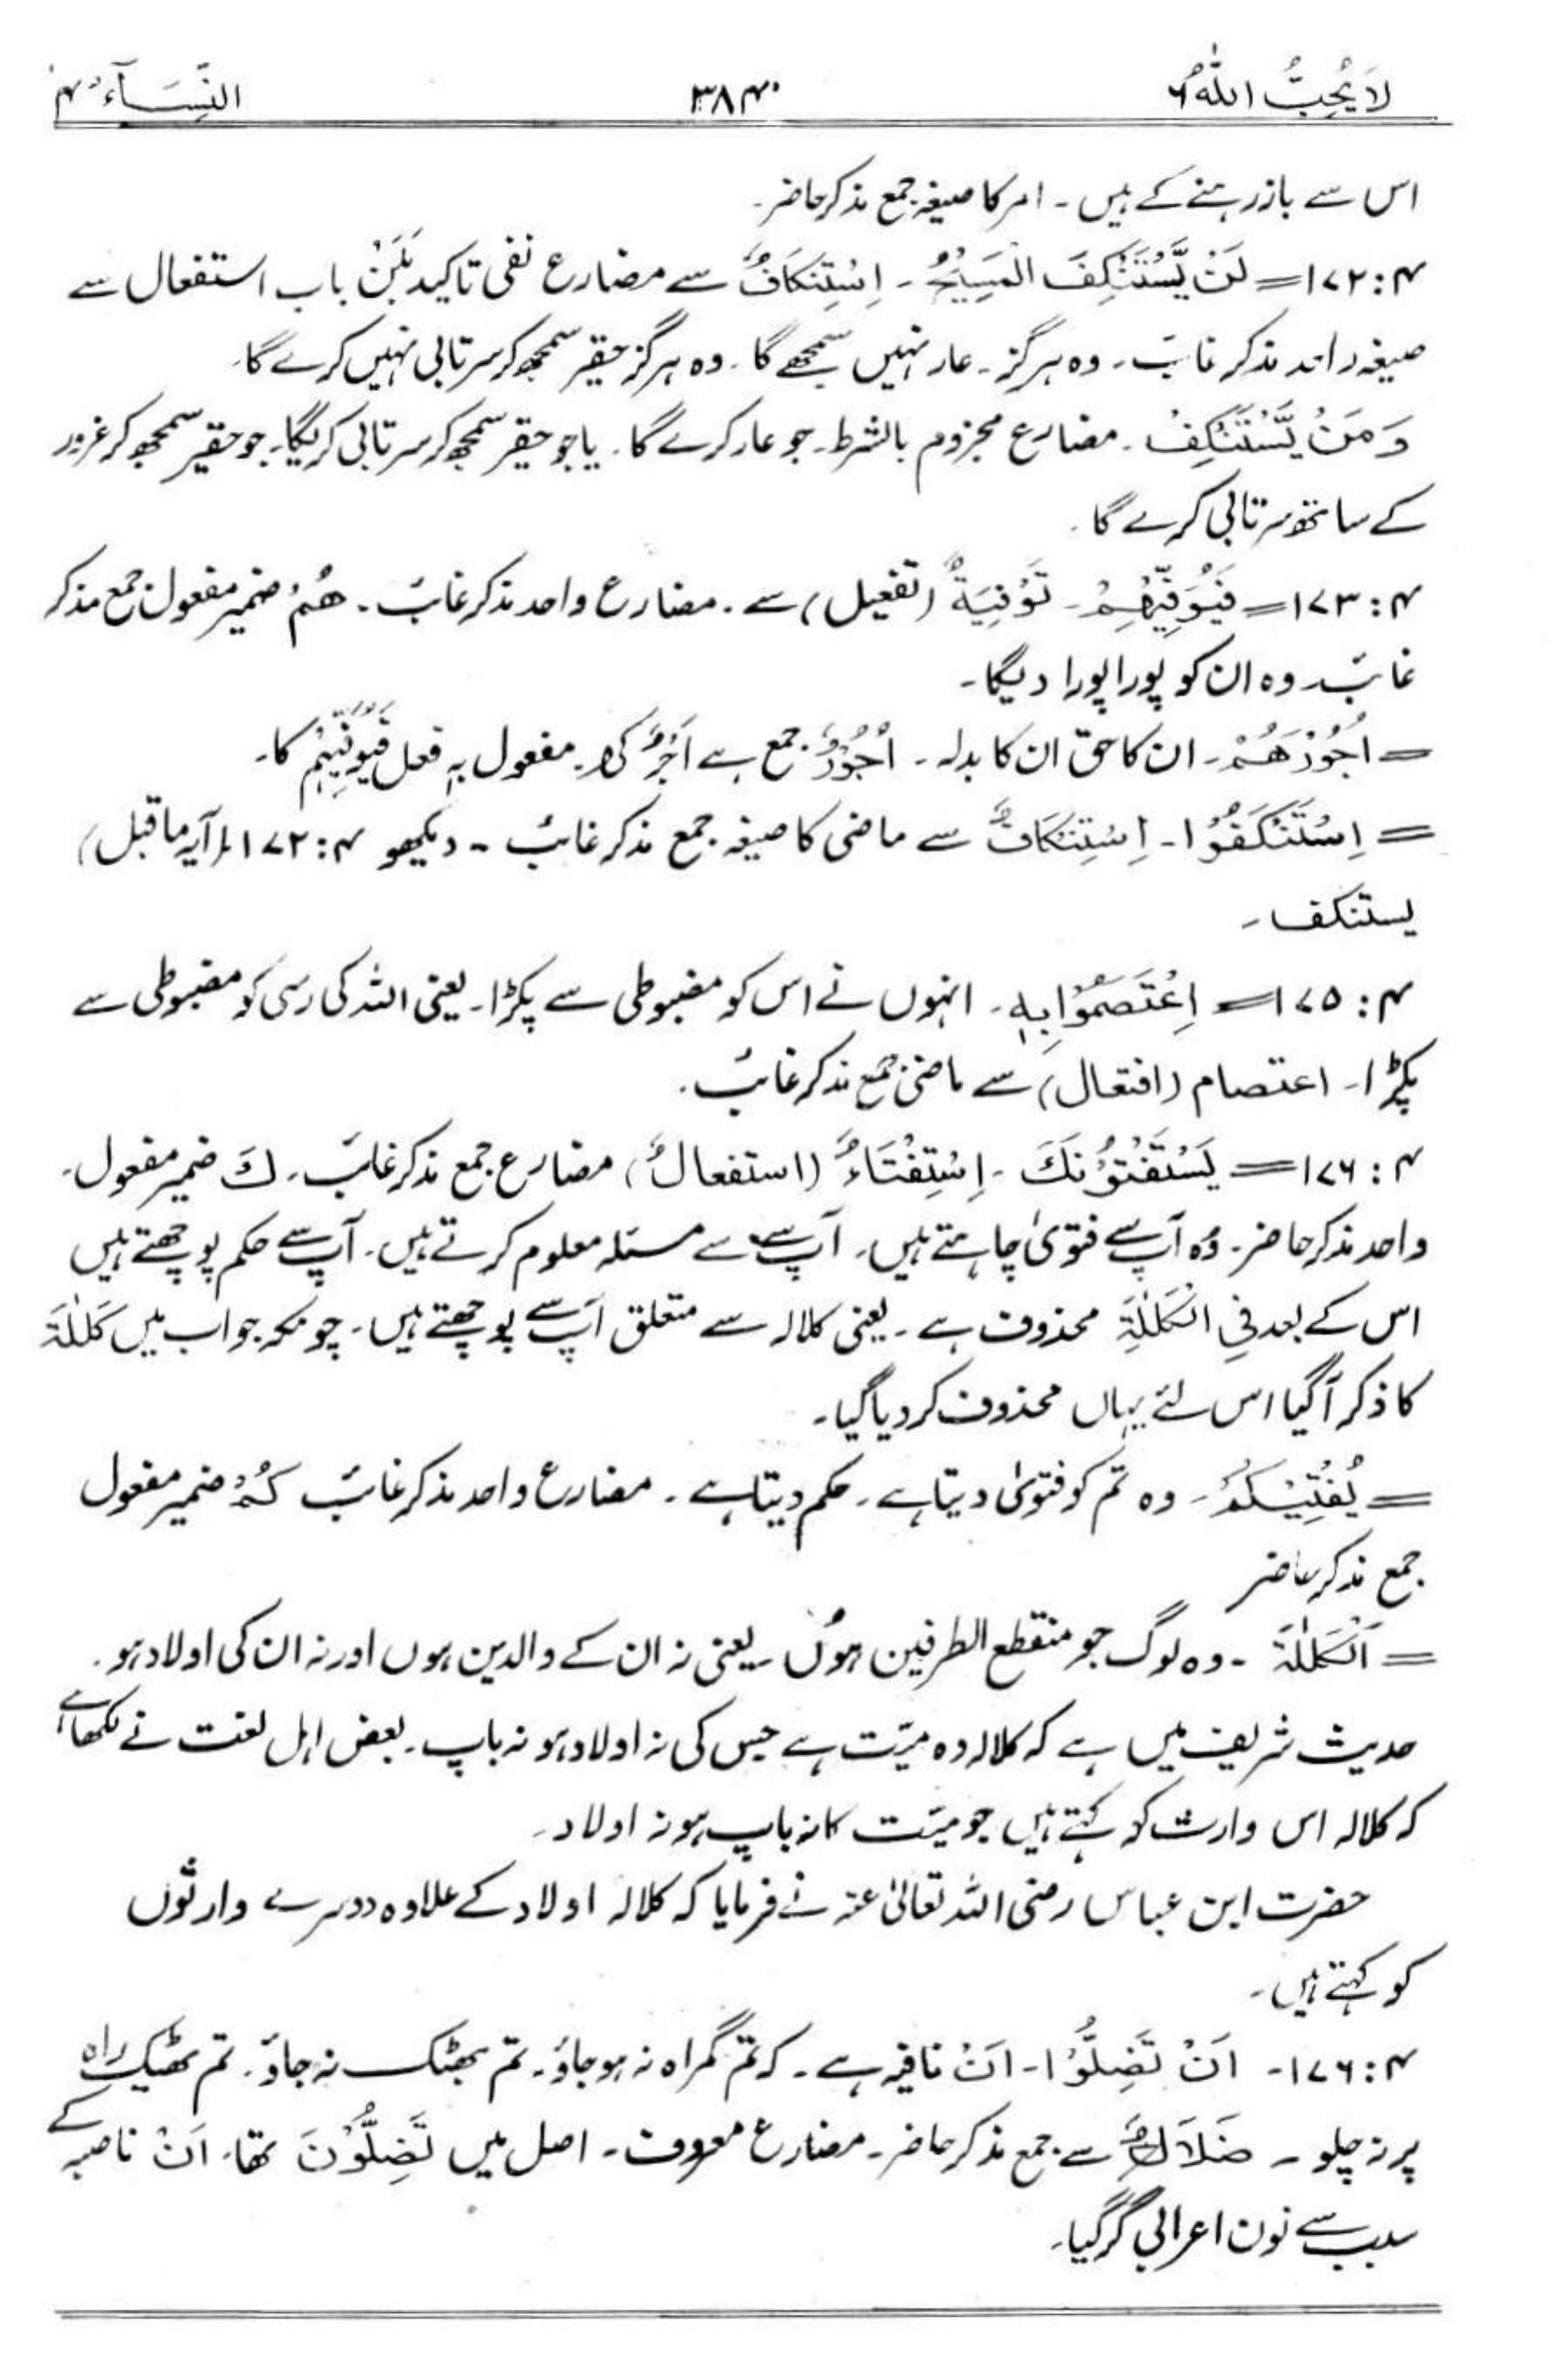 لَا يُحِبُّ اللّٰهُ ٦ ٣٨٤ النِّسَآء ٤
اس سے باز رہنے کے ہیں ۔ امر کا صیغہ جمع مذکر حاضر۔
٤ : ١٧٢ = لَنْ يَّسْتَنْكِفَ الْمَسِيْحُ ۔ اِسْتِنْكَافٌ سے مضارع نفی تاکید بَلَنْ باب استفعال سے
صیغہ واحد مذکر غائب ۔ وہ ہرگز ۔ عار نہیں سمجھے گا ۔ وہ ہرگز حقیر سمجھ کر سرتابی نہیں کرے گا۔
وَ مَنْ يَّسْتَنْكِفْ ۔ مضارع مجزوم بالشرط ۔ جو عار کرے گا ۔ یا جو حقیر سمجھ کر سرتابی کریگا ۔ جو حقیر سمجھ کر غرور
کے ساتھ سرتابی کرے گا ۔
٤ : ١٧٣ = فَيُوَفِّيْهِمْ ۔ تَوْفِيَةٌ (تفعیل) سے ۔ مضارع واحد مذکر غائب ۔ هُمْ ضمیر مفعول جمع مذکر
غائب ۔ وہ ان کو پورا پورا دیگا ۔
= اُجُوْرَهُمْ ۔ ان کا حق ان کا بدلہ ۔ اُجُوْرٌ جمع ہے اَجْرٌ کی ۔ مفعول بہٖ فعل فَيُوَفِّيْهِمْ کا ۔
= اِسْتَنْكَفُوْا ۔ اِسْتِنْكَافٌ سے ماضی کا صیغہ جمع مذکر غائب ۔ دیکھو ٤ : ١٧٢ (آیہ ما قبل)
یستنکف ۔
٤ : ١٧٥ = اِعْتَصَمُوْا بِهٖ ۔ انہوں نے اس کو مضبوطی سے پکڑا ۔ یعنی اللہ کی رسی کو مضبوطی سے
پکڑا ۔ اعتصام (افتعال) سے ماضی جمع مذکر غائب ۔
٤ : ١٧٦ = يَسْتَفْتُوْنَكَ ۔ اِسْتِفْتَاءٌ (استفعالٌ) مضارع جمع مذکر غائب ۔ كَ ضمیر مفعول ۔
واحد مذکر حاضر ۔ وُہ آپ سے فتویٰ چاہتے ہیں ۔ آپ سے سے مسئلہ معلوم کرتے ہیں ۔ آپ سے حکم پوچھتے ہیں
اس کے بعد فِی الْكَلٰلَةِ محذوف ہے ۔ یعنی کلالہ سے متعلق آپ سے پوچھتے ہیں ۔ چونکہ جواب میں كَلٰلَةَ
کا ذکر آ گیا اس لئے یہاں محذوف کر دیا گیا ۔
= يُفْتِيْكُمْ ۔ وہ تم کو فتویٰ دیتا ہے ۔ حکم دیتا ہے ۔ مضارع واحد مذکر غائب كُمْ ضمیر مفعول
جمع مذکر حاضر
= اَلْكَلٰلَةَ ۔ وہ لوگ جو منقطع الطرفین ہوں ۔ یعنی نہ ان کے والدین ہوں اور نہ ان کی اولاد ہو ۔
حدیث شریف میں ہے کہ کلالہ وہ میّت ہے جس کی نہ اولاد ہو نہ باپ ۔ بعض اہل لغت نے لکھا ہے
کہ کلالہ اس وارث کو کہتے ہیں جو میّت کا نہ باپ ہو نہ اولاد ۔
حضرت ابن عباس رضی اللہ تعالیٰ عنہ نے فرمایا کہ کلالہ اولاد کے علاوہ دوسرے وارثوں
کو کہتے ہیں ۔
٤ : ١٧٦ ۔ اَنْ تَضِلُّوْا ۔ اَنْ نافیہ ہے ۔ کہ تم گمراہ نہ ہو جاؤ ۔ تم بھٹک نہ جاؤ ۔ تم ٹھیک راہ
پر نہ چلو ۔ ضَلَالٌ سے جمع مذکر حاضر ۔ مضارع معروف ۔ اصل میں تَضِلُّوْنَ تھا ۔ اَنْ ناصبہ کے
سبب سے نون اعرابی گر گیا ۔